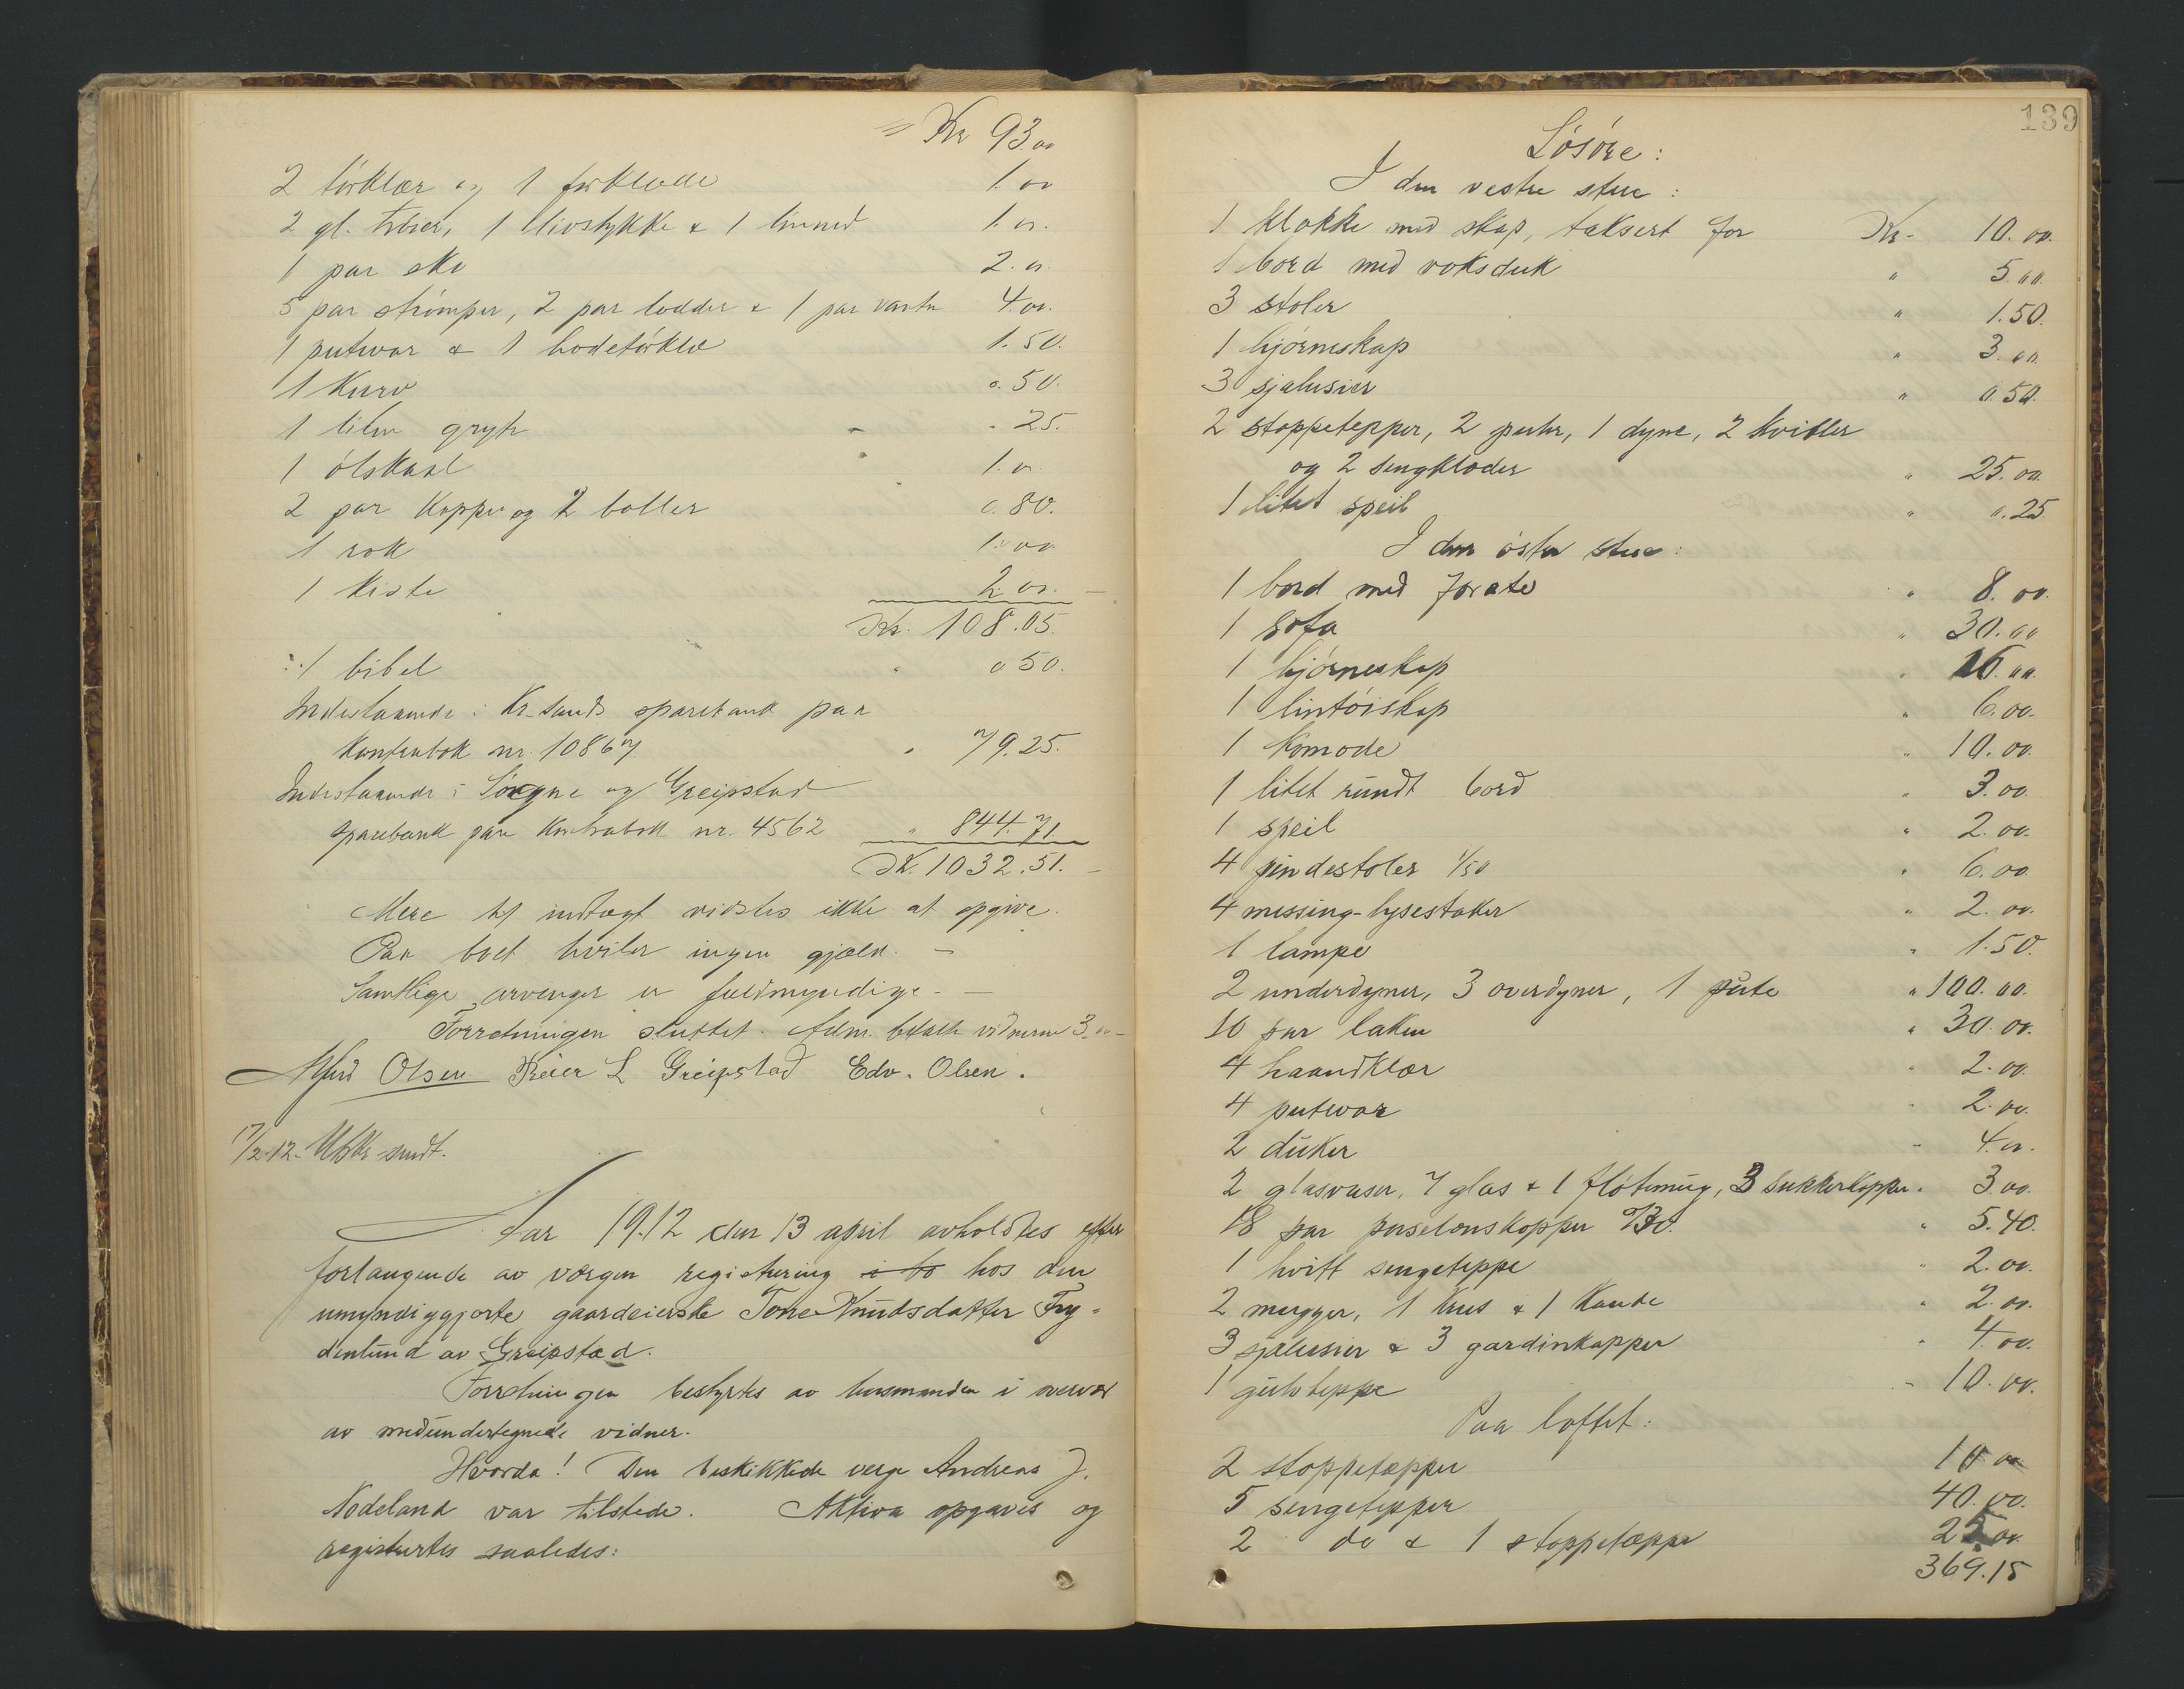 = Kr 93.00
2 tørklær og 1 forklæde 1.00
2 gl. trøier, 1 livstykke & 1 linned 1.00.
1 par sko 2.00
5 par strømper, 2 par lodder & 1 par vanter 4.00.
1 putevar & 1 hodetørklæ 1.50.
1 kurv 0.50.
1 liten gryte - - 25.
1 ølskaal 1.00
2 par kopper og 2 boller 0.80.
1 rok 1.00
1 kiste 2.00. -
Kr. 108.05.
1 bibel " 0 50.
Indestaaende i Kr.sands sparebank paa
kontrabok nr. 10867 " 79.25.
Indestaaende i Søgne og Greipstad
sparebank paa kontrabok nr. 4562 " 844.71.
Kr. 1032.51. -
Mere til indtægt vidstes ikke at opgive.
Paa boet hviler ingen gjæld. -
Samtlige arvinger er fuldmyndige. -
Forretningen sluttet. Adm. betalte vidnerne 3.00 -
Alfred Olsen. Reier L Greipstad Edv. Olsen.
17/2-12. Utskr. sendt.
Aar 1912 den 13 april avholdtes efter
forlangende av værgen registrering i bo hos den
umyndiggjorte gaardeierske Tone Knudsdatter Fry-
denlund av Greipstad.
Forretningen bestyrtes av lensmanden i overvær
av medundertegnede vidner.
Hvorda! Den beskikkede verge Andreas J.
Nodeland var tilstede. Aktiva opgaves og
registrertes saaledes:
139
Løsøre:
I den vestre stue:
1 klokke med skap, taksert for Kr. 10.00.
1 bord med voksduk " 5.00.
3 stoler " 1.50.
1 hjørneskap " 3.00.
3 sjalusier " 0.50.
2 stoppetepper, 2 puter, 1 dyne, 2 kvitler
og 2 sengklæder " 25.00.
1 litet speil " 0.25
I den østre stue:
1 bord med " 8.00.
1 sofa " 30.00
1 hjørneskap " 15.00.
1 lintøiskap " 6.00.
1 komode " 10.00.
1 litet rundt bord " 3.00.
1 speil " 2.00.
4 pindestoler 1/50 " 6.00.
4 messing-lysestaker " 2.00.
1 lampe " 1.50.
2 underdyner, 3 overdyner, 1 pute " 100.00.
10 par laken " 30.00.
4 haandklær " 2.00.
4 putevar " 2.00.
2 duker " 4.00.
2 glasvaser, 7 glas & 1 fløtemug, 3 sukkerkopper " 3.00.
18 par porselænskopper 0/30. " 5.40.
1 hvitt sengeteppe " 2.00.
2 mugger, 1 krus & 1 kande " 2.00.
3 sjalusier & 3 gardinkapper " 4.00.
1 gulvteppe " 10.00.
Paa loftet:
2 stoppetæpper 10 00
5 sengetepper 40.00.
2 do & 1 stoppetæppe 25.00.
369.15